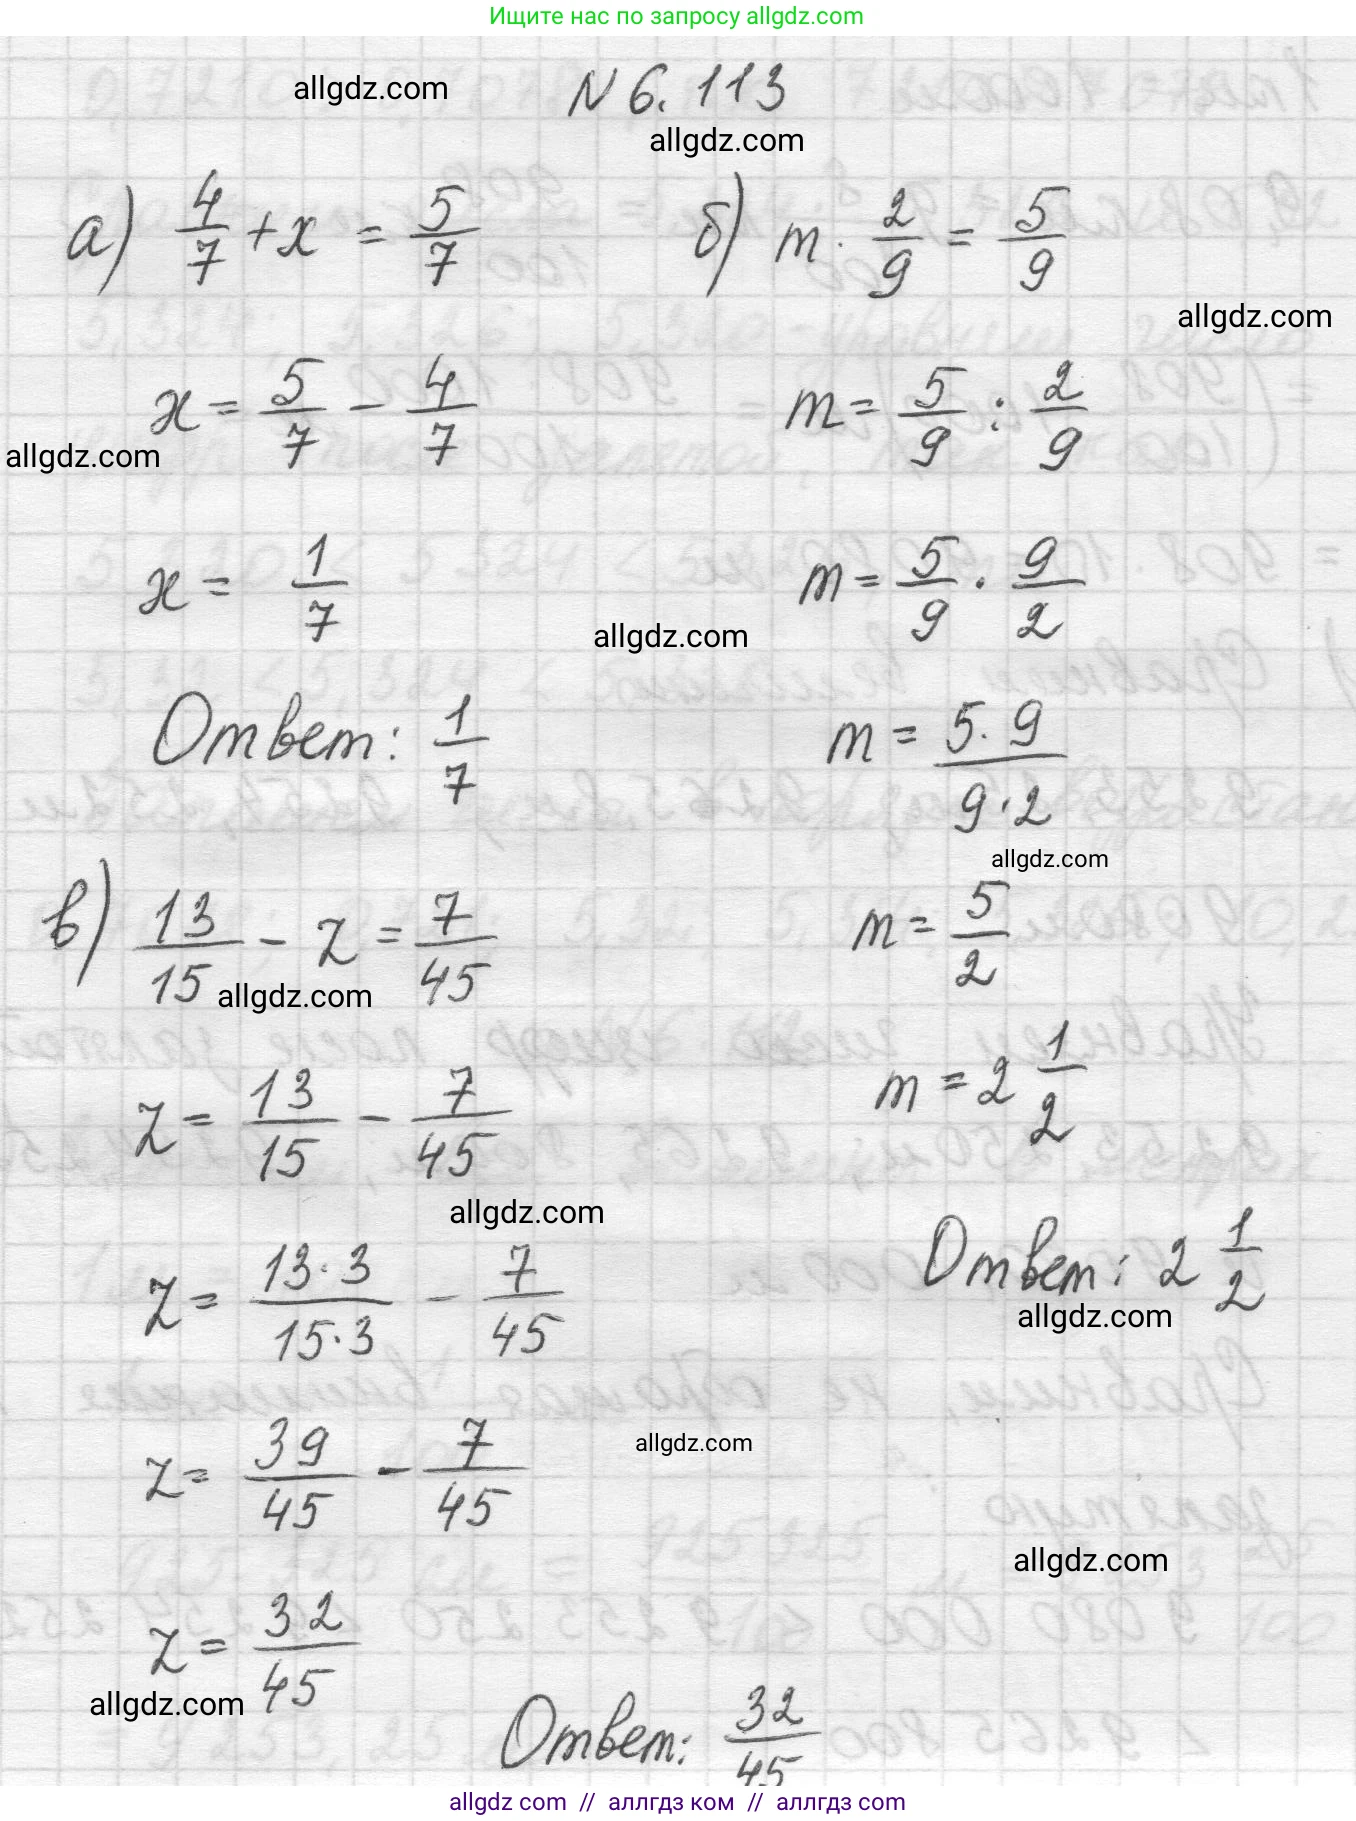 Ищите нас по запросу allgdz.com
allgdz.com
N 6.113
allgdz.com
а) 4/7 + x = 5/7
x = 5/7 - 4/7
allgdz.com
x = 1/7
Ответ: 1/7
б) m · 2/9 = 5/9
allgdz.com
m = 5/9 : 2/9
m = 5/9 · 9/2
allgdz.com
m = 5·9/9·2
allgdz.com
m = 5/2
m = 2 1/2
Ответ: 2 1/2
allgdz.com
в) 13/15 - z = 7/45
allgdz.com
z = 13/15 - 7/45
allgdz.com
z = 13·3/15·3 - 7/45
z = 39/45 - 7/45
allgdz.com
allgdz.com
z = 32/45
allgdz.com
Ответ: 32/45
allgdz.com // аллгдз ком // аллгдз com